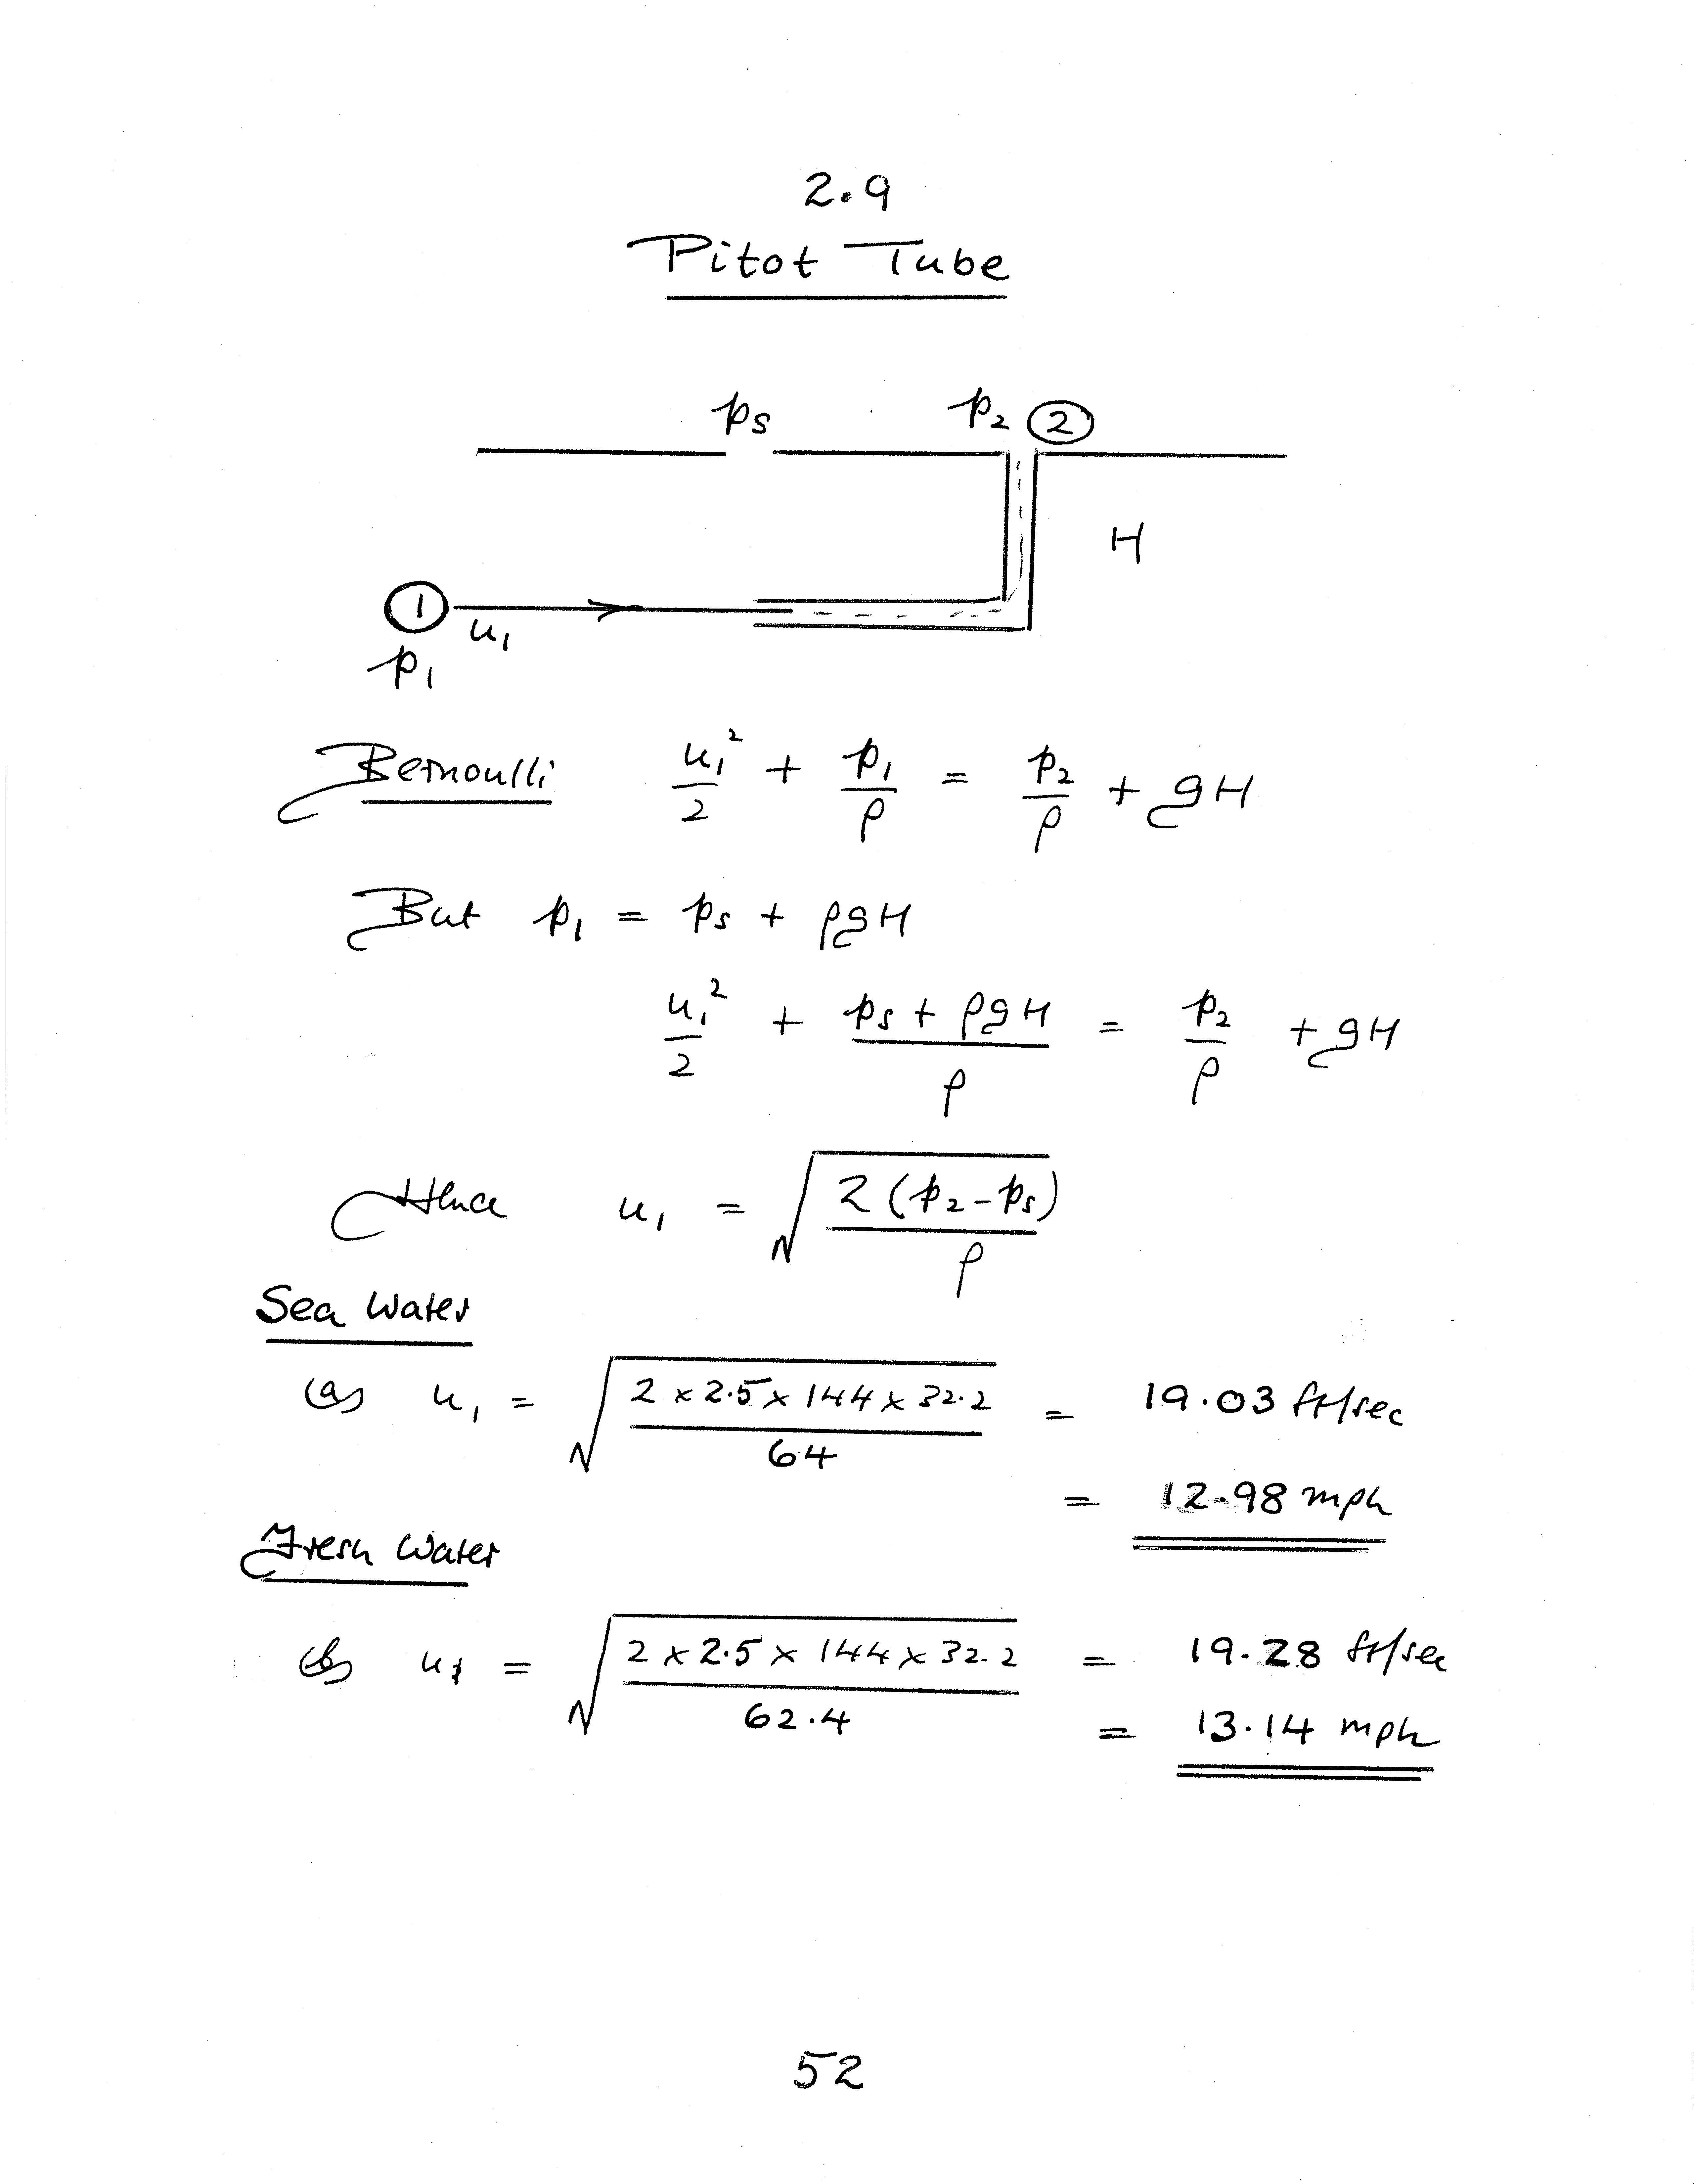 2.9
Pitot Tube
ps p₂ ②
H
① u₁
p₁
Bernoulli u₁²/2 + p₁/ρ = p₂/ρ + gH
But p₁ = ps + ρgH
u₁²/2 + (ps + ρgH)/ρ = p₂/ρ + gH
Hence u₁ = √(2(p₂ - ps)/ρ)
Sea Water
(a) u₁ = √(2 × 2.5 × 144 × 32.2/64) = 19.03 ft/sec
= 12.98 mph
Fresh Water
(b) u₁ = √(2 × 2.5 × 144 × 32.2/62.4) = 19.28 ft/sec
= 13.14 mph
52